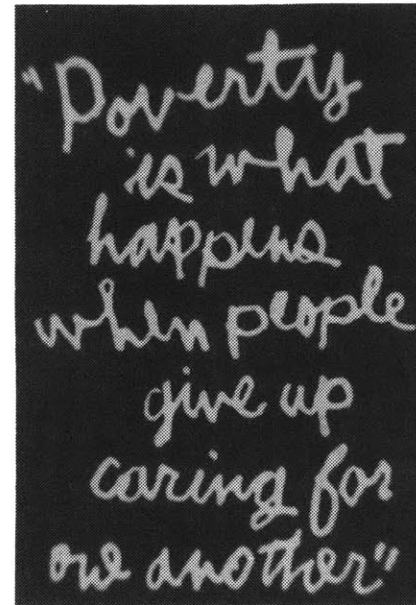 "Poverty
is what
happens
when people
give up
caring for
one another"